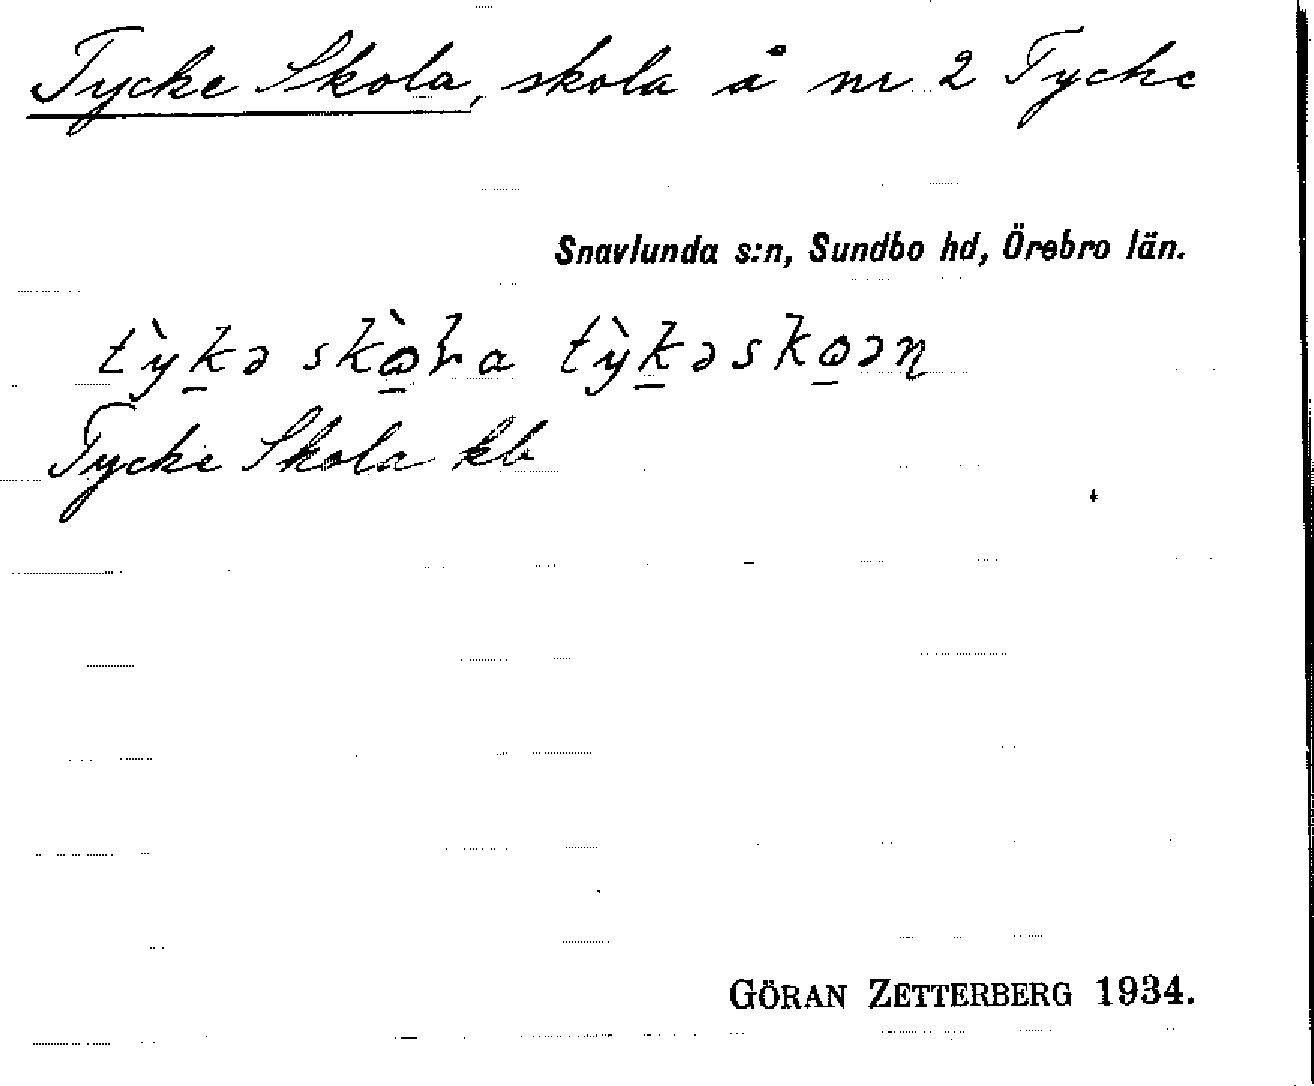 Tycke Skola, skola å nr 2 Tycke
Snavlunda s:n, Sundbo hd, Örebro län.
tỳk̲ə skò̲ɽa tỳk̲əsko̲ən
Tycke Skola kb
GÖRAN ZETTERBERG 1934.